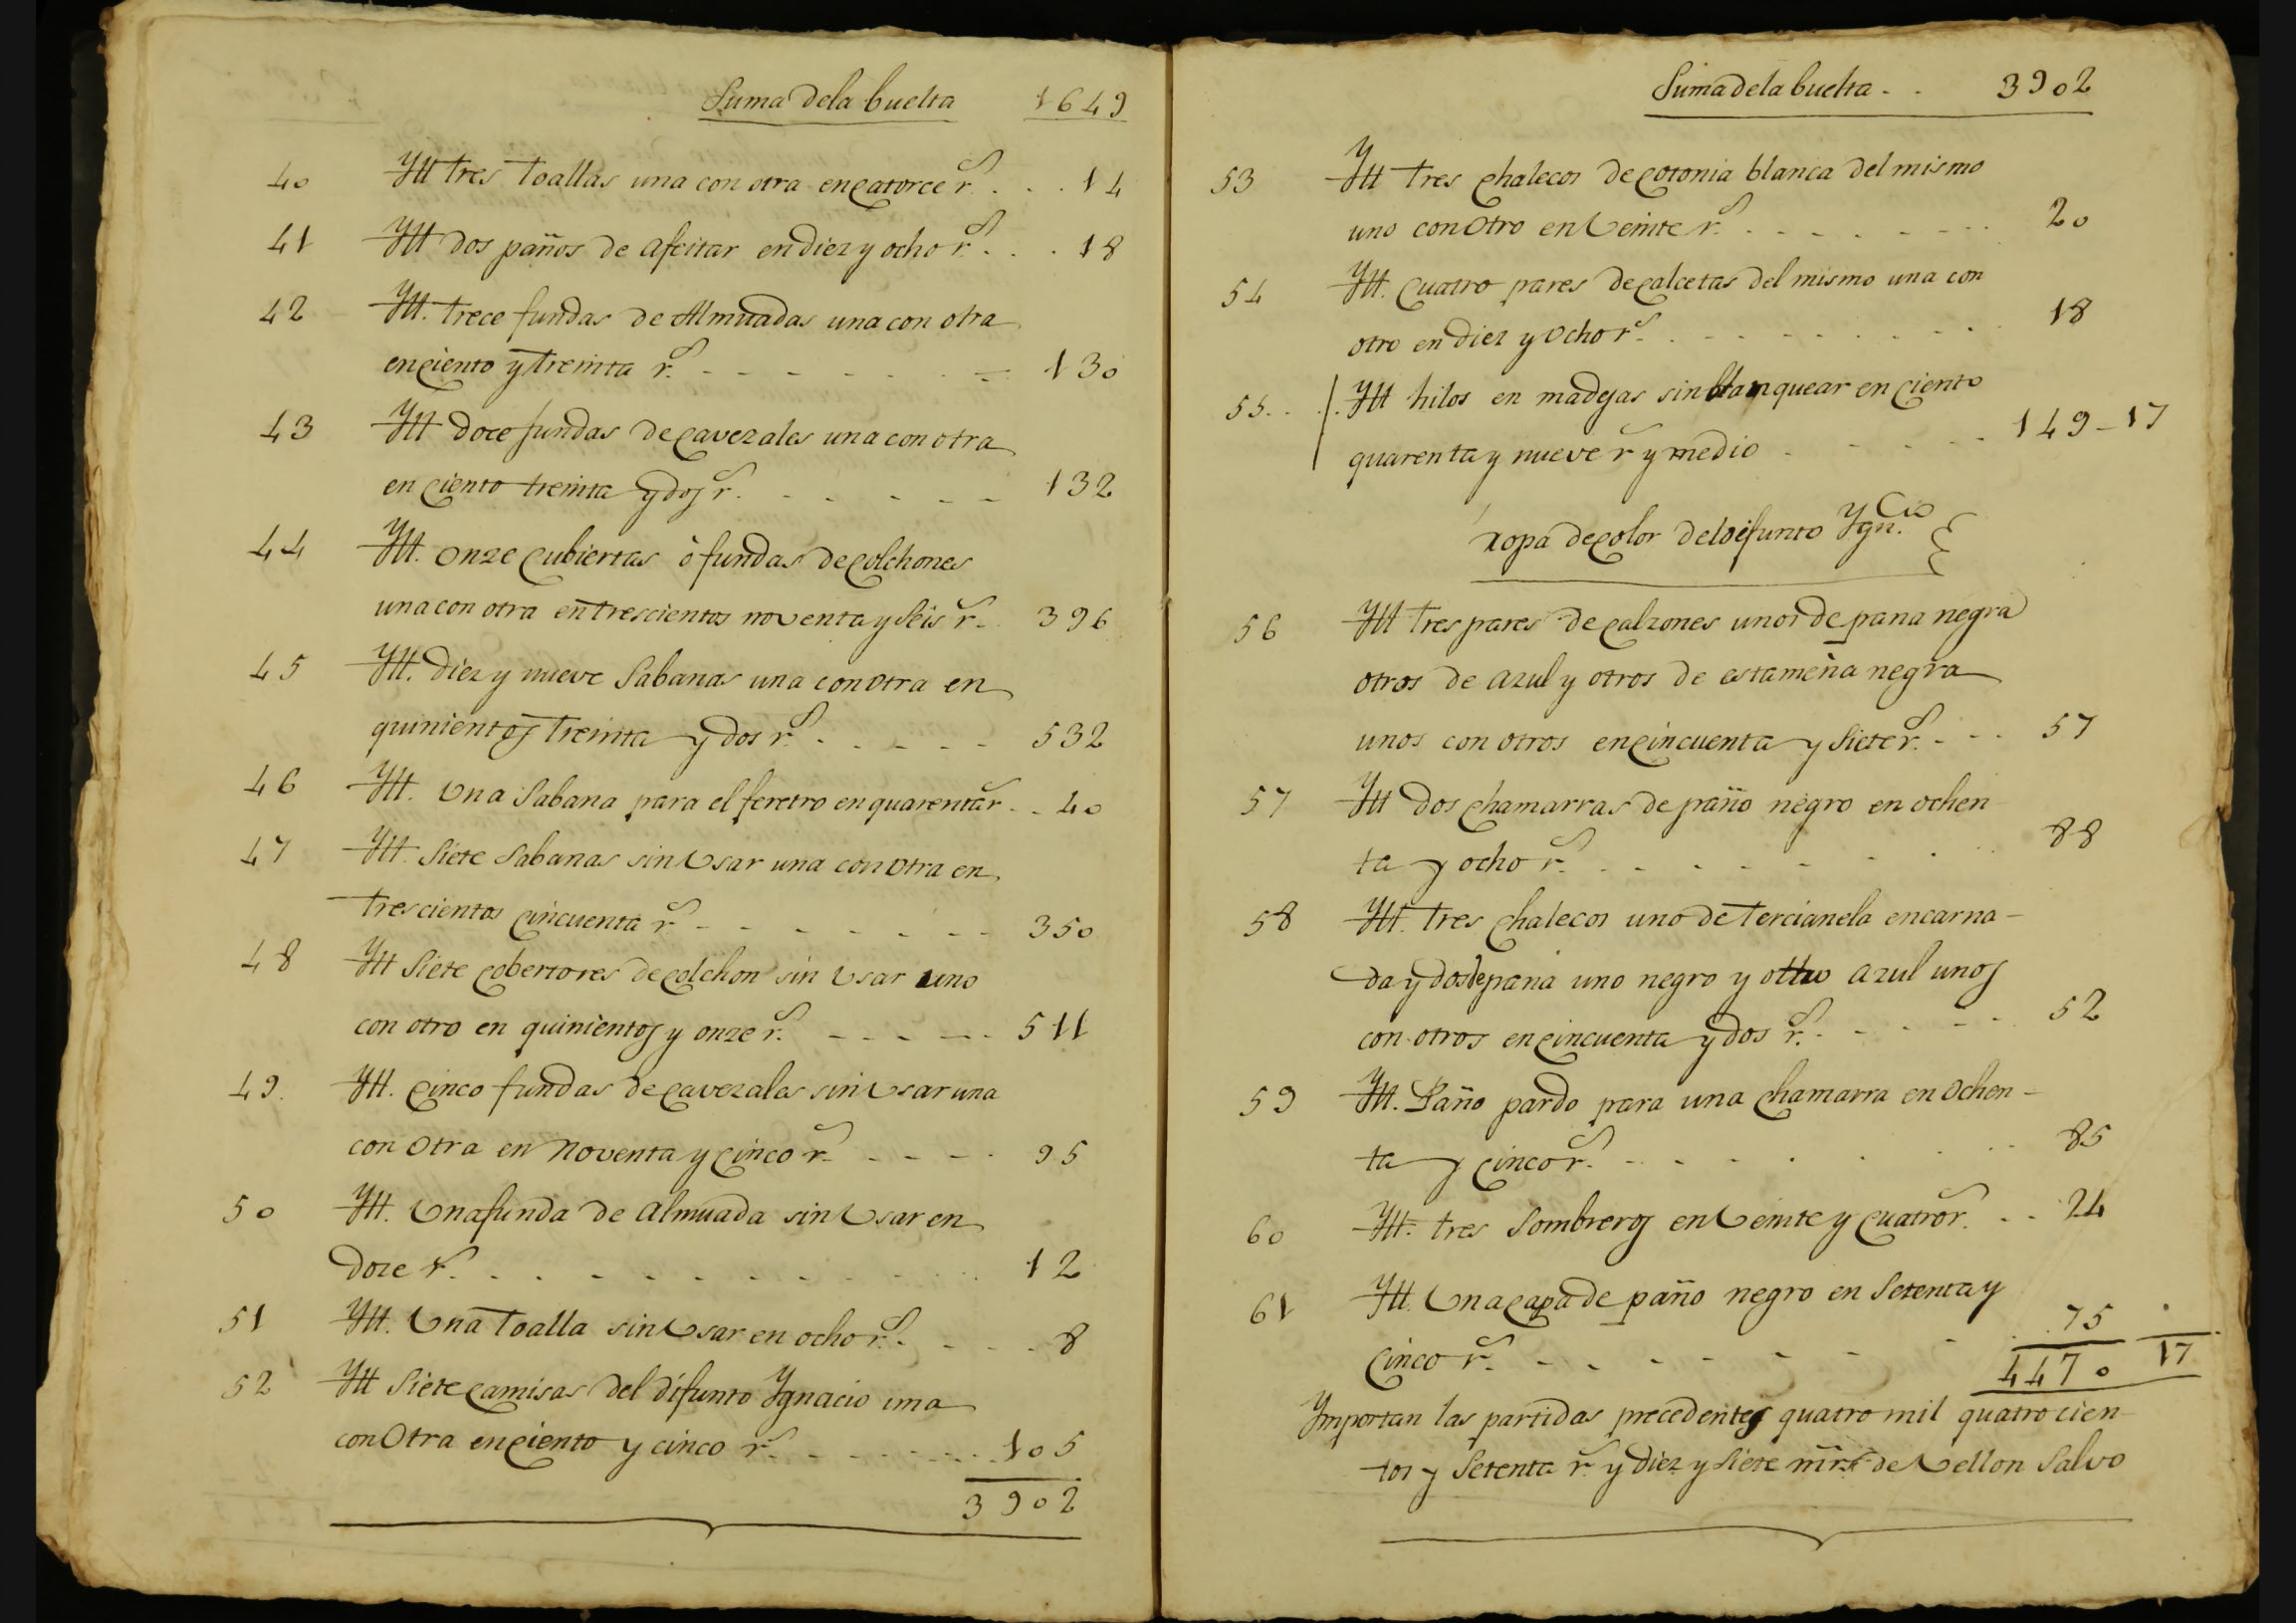 Suma dela buelta 1649
40 Ytt tres toallas una con otra en catorce r.s . . . 14
41 Ytt dos paños de afeitar en diez y ocho r.s . . . 18
42 Ytt. trece fundas de Almuadas una con otra
en ciento y treinta r.s - - - - - - - 130
43 Ytt doce fundas de cavezales una con otra
en ciento treinta y dos r.s - - - - - 132
44 Ytt. onze cubiertas ò fundas de colchones
una con otra en trescientos noventa y seis r.s 396
45 Ytt. diez y nueve Sabanas una con otra en
quinientos treinta y dos r.s . - - - - 532
46 Ytt. Una Sabana para el feretro en quarenta r.s - - 40
47 Ytt. Siete Sabanas sin Usar una con otra en
trescientos cincuenta r.s - - - - - - 350
48 Ytt Siete cobertores de colchon sin Usar uno
con otro en quinientos y onze r.s - - - - - 511
49. Ytt. Cinco fundas de cavezales sin Usar una
con Otra en Noventa y Cinco r.s - - - - 95
50 Ytt. Una funda de Almuada sin Usar en
doze r.s . . - - - - - - - - 12
51 Ytt. Una toalla sin Usar en ocho r.s . - - - 8
52 Ytt Siete camisas del difunto Ygnacio una
con Otra en ciento y cinco r.s - - - - - 105
3902
Suma dela buelta - - 3902
53 Ytt tres chalecos de cotonia blanca del mismo
uno con Otro en Veinte r.s . - - - - - - 20
54 Ytt. Cuatro pares de calcetas del mismo una con
otro en diez y Ocho r.s - - - - - - - 18
55. . . Ytt hilos en madejas sin blanquear en Ciento
quarenta y nueve r.s y medio - - - - - 149-17
ropa de color del difunto Ygn.cio
56 Ytt tres pares de calzones unos de pana negra
otros de azul y otros de estameña negra
unos con otros en cincuenta y Siete r.s - - - 57
57 Ytt dos chamarras de paño negro en ochen-
ta y ocho r.s - - - - - - - - 88
58 Ytt. tres chalecos uno de tercianela encarna-
da y dos de pana uno negro y otro azul unos
con otros en cincuenta y dos r.s - - - - - 52
59 Ytt. Paño pardo para una chamarra en Ochen-
ta y Cinco r.s - - - - - - - - 85
60 Ytt. tres Sombreros en Veinte y Cuatro r.s - - 24
61 Ytt. Una capa de paño negro en Setenta y
Cinco r.s - - - - - - - - 75
4470 17
Ymportan las partidas precedentes quatro mil quatrocien-
tos y Setenta r.s y diez y Siete mrs de Vellon Salvo